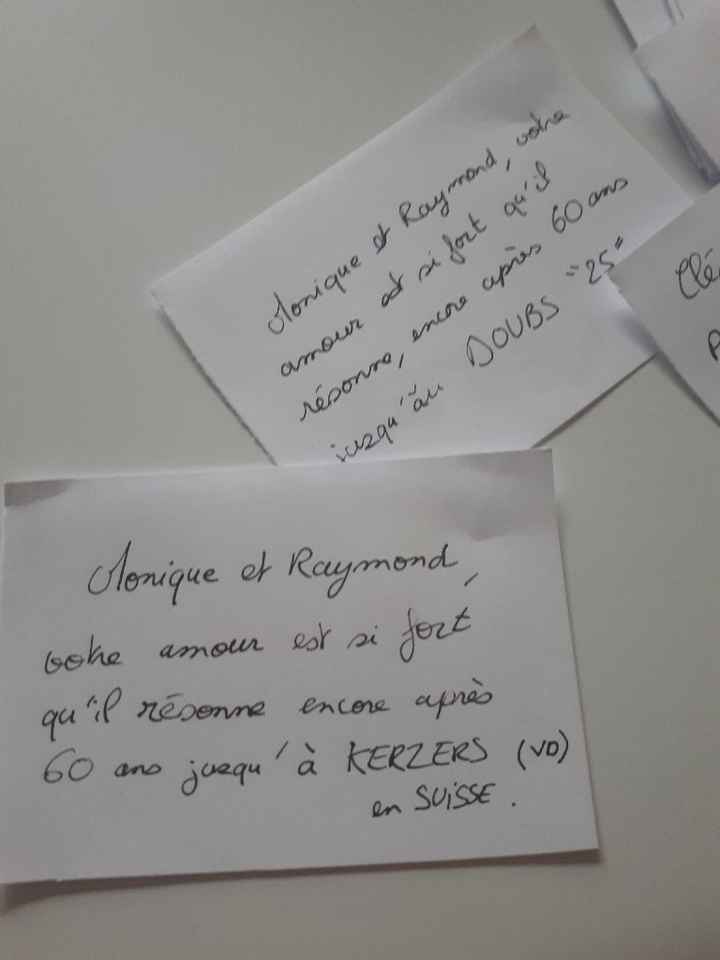 Monique et Raymond, votre
amour est si fort qu'il
résonne, encore après 60 ans
jusqu'au DOUBS "25"
Clé
Monique et Raymond,
votre amour est si fort
qu'il résonne encore après
60 ans jusqu'à KERZERS (VD)
en SUISSE.